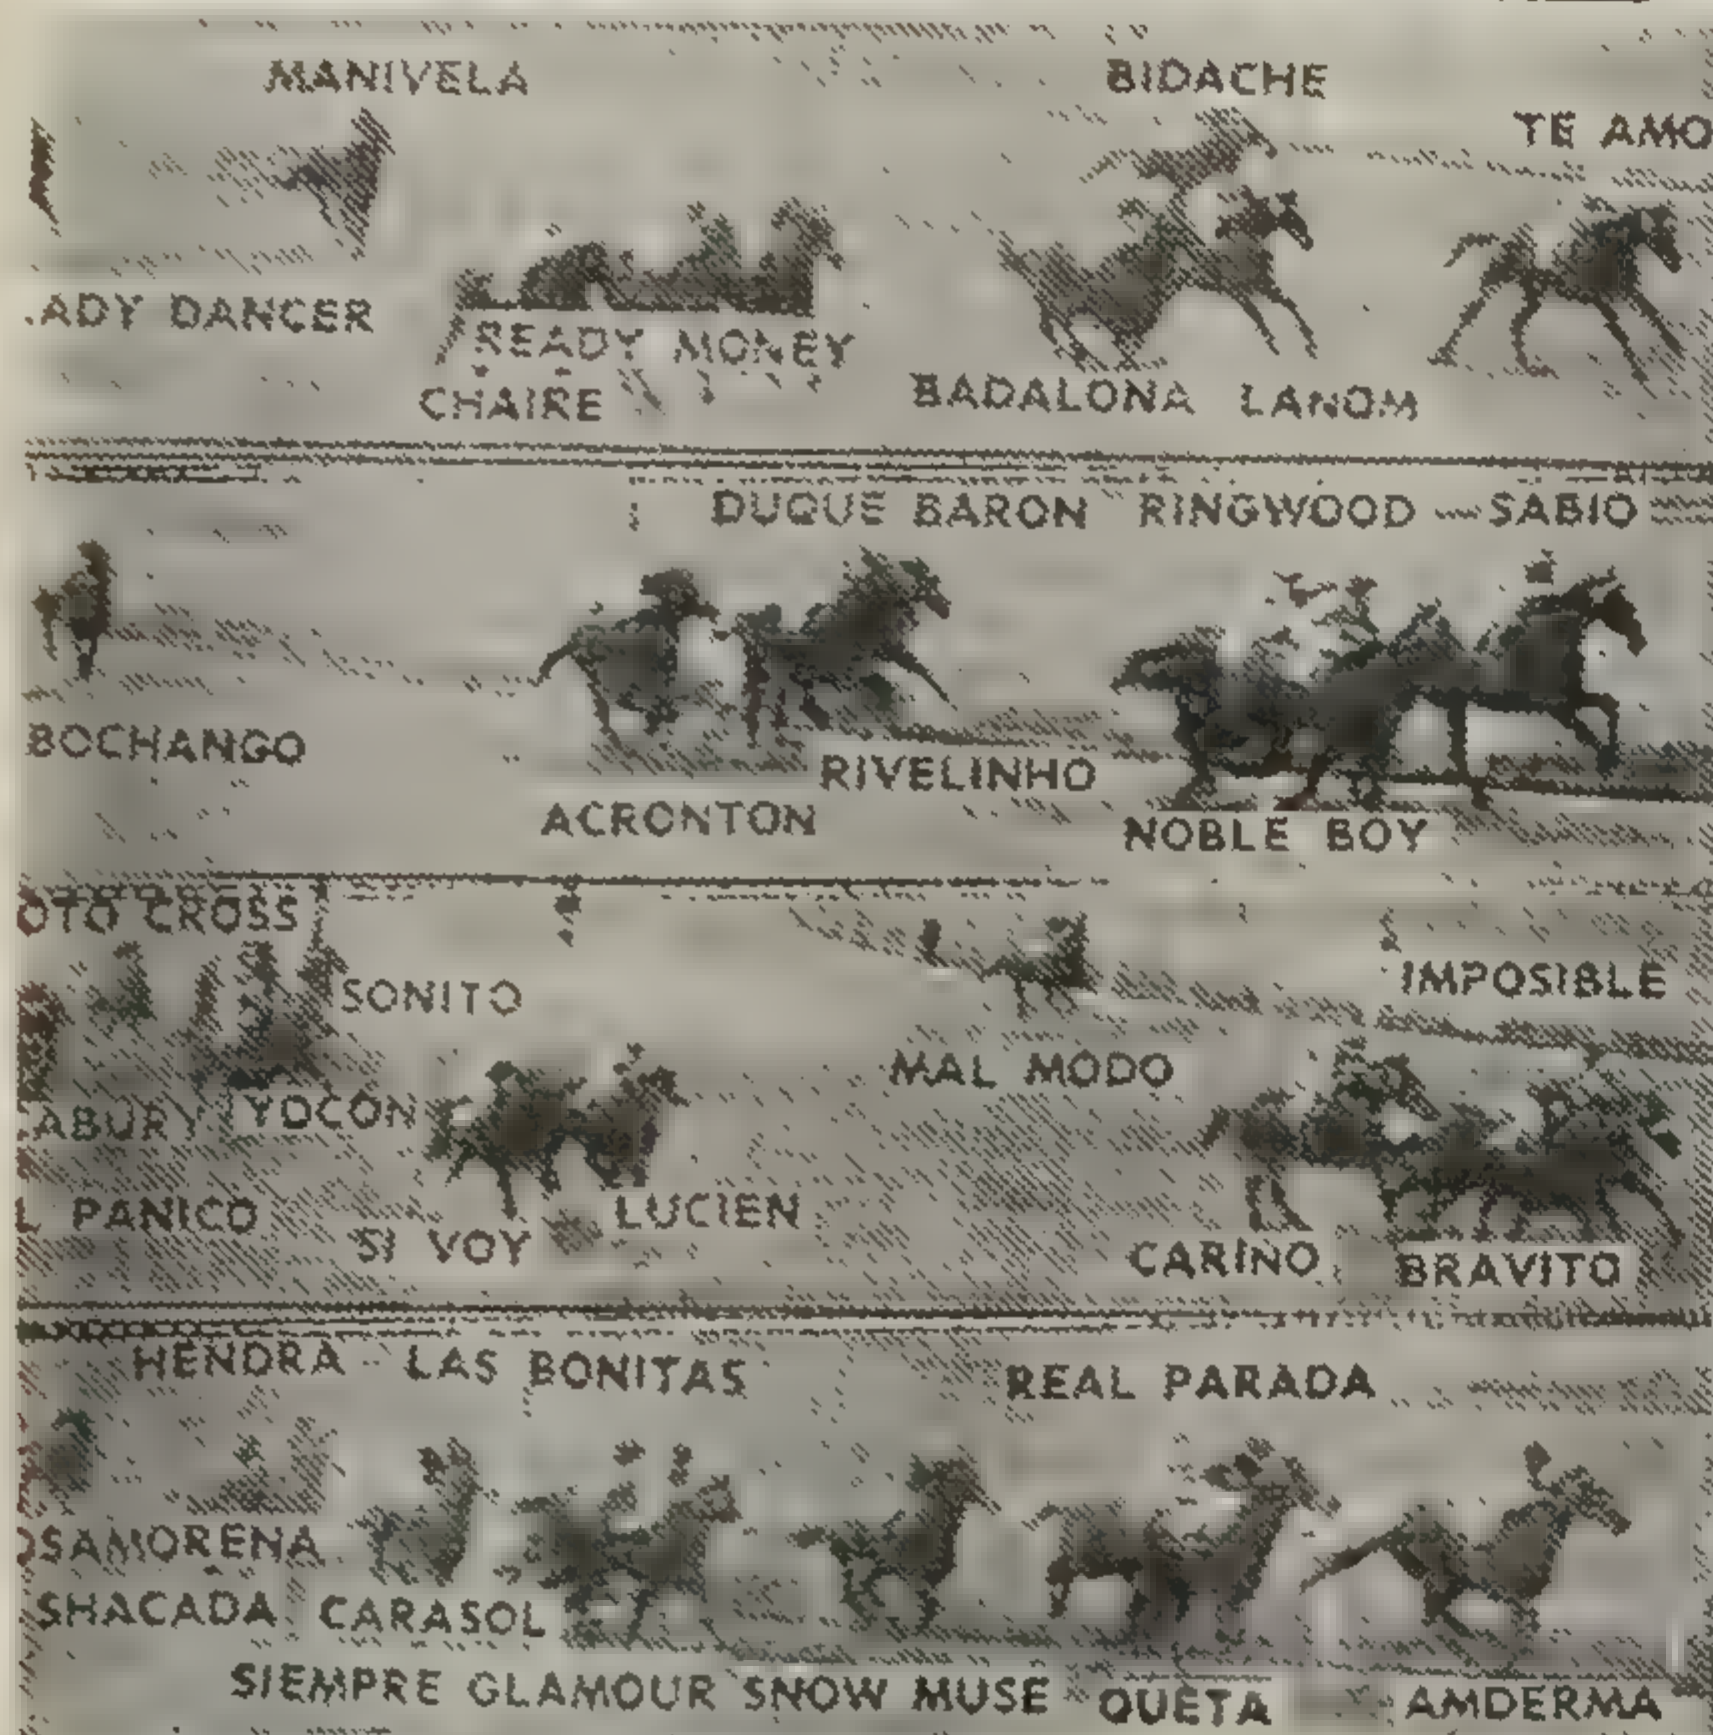 MANIVELA BIDACHE
TE AMO
ADY DANCER
READY MONEY
CHAIRE BADALONA LANOM
DUQUE BARON RINGWOOD SABIO
BOCHANGO
RIVELINHO
ACRONTON NOBLE BOY
OTO CROSS
SONITO IMPOSIBLE
MAL MODO
ABURY YOCON
L PANICO LUCIEN
SI VOY CARINO BRAVITO
HENDRA LAS BONITAS REAL PARADA
OSAMORENA
SHACADA CARASOL
SIEMPRE GLAMOUR SNOW MUSE QUETA AMDERMA